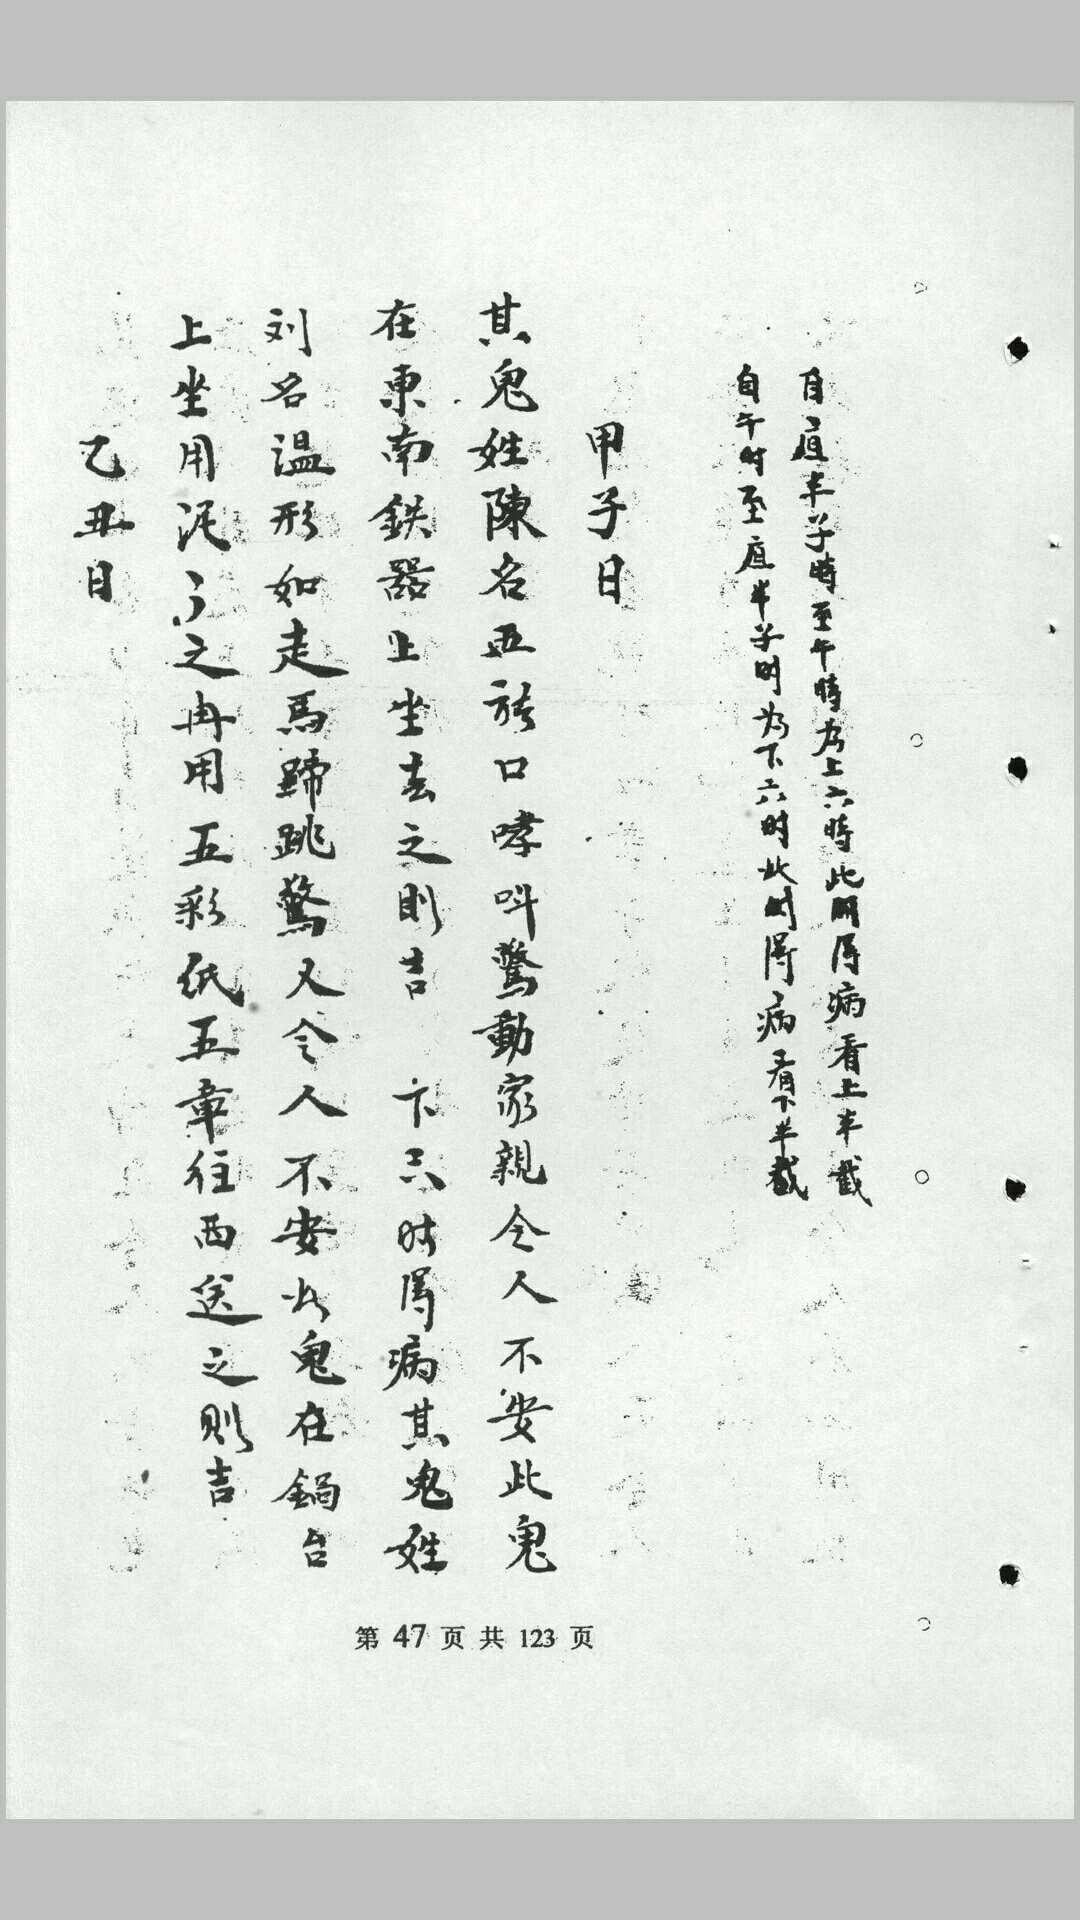 自夜半子時至午時为上六時此時得病看上半截
自午时至夜半子时为下六时此时得病看下半截
甲子日
其鬼姓陳名五 口哮叫驚動家親令人不安此鬼
在東南鉄器上坐去之則吉 下六时得病其鬼姓
刘名温形如走馬蹄跳驚又令人不安此鬼在鍋台
上坐用泥 之冉用五彩纸五章往西送之則吉
乙丑日
第 47 页 共 123 页